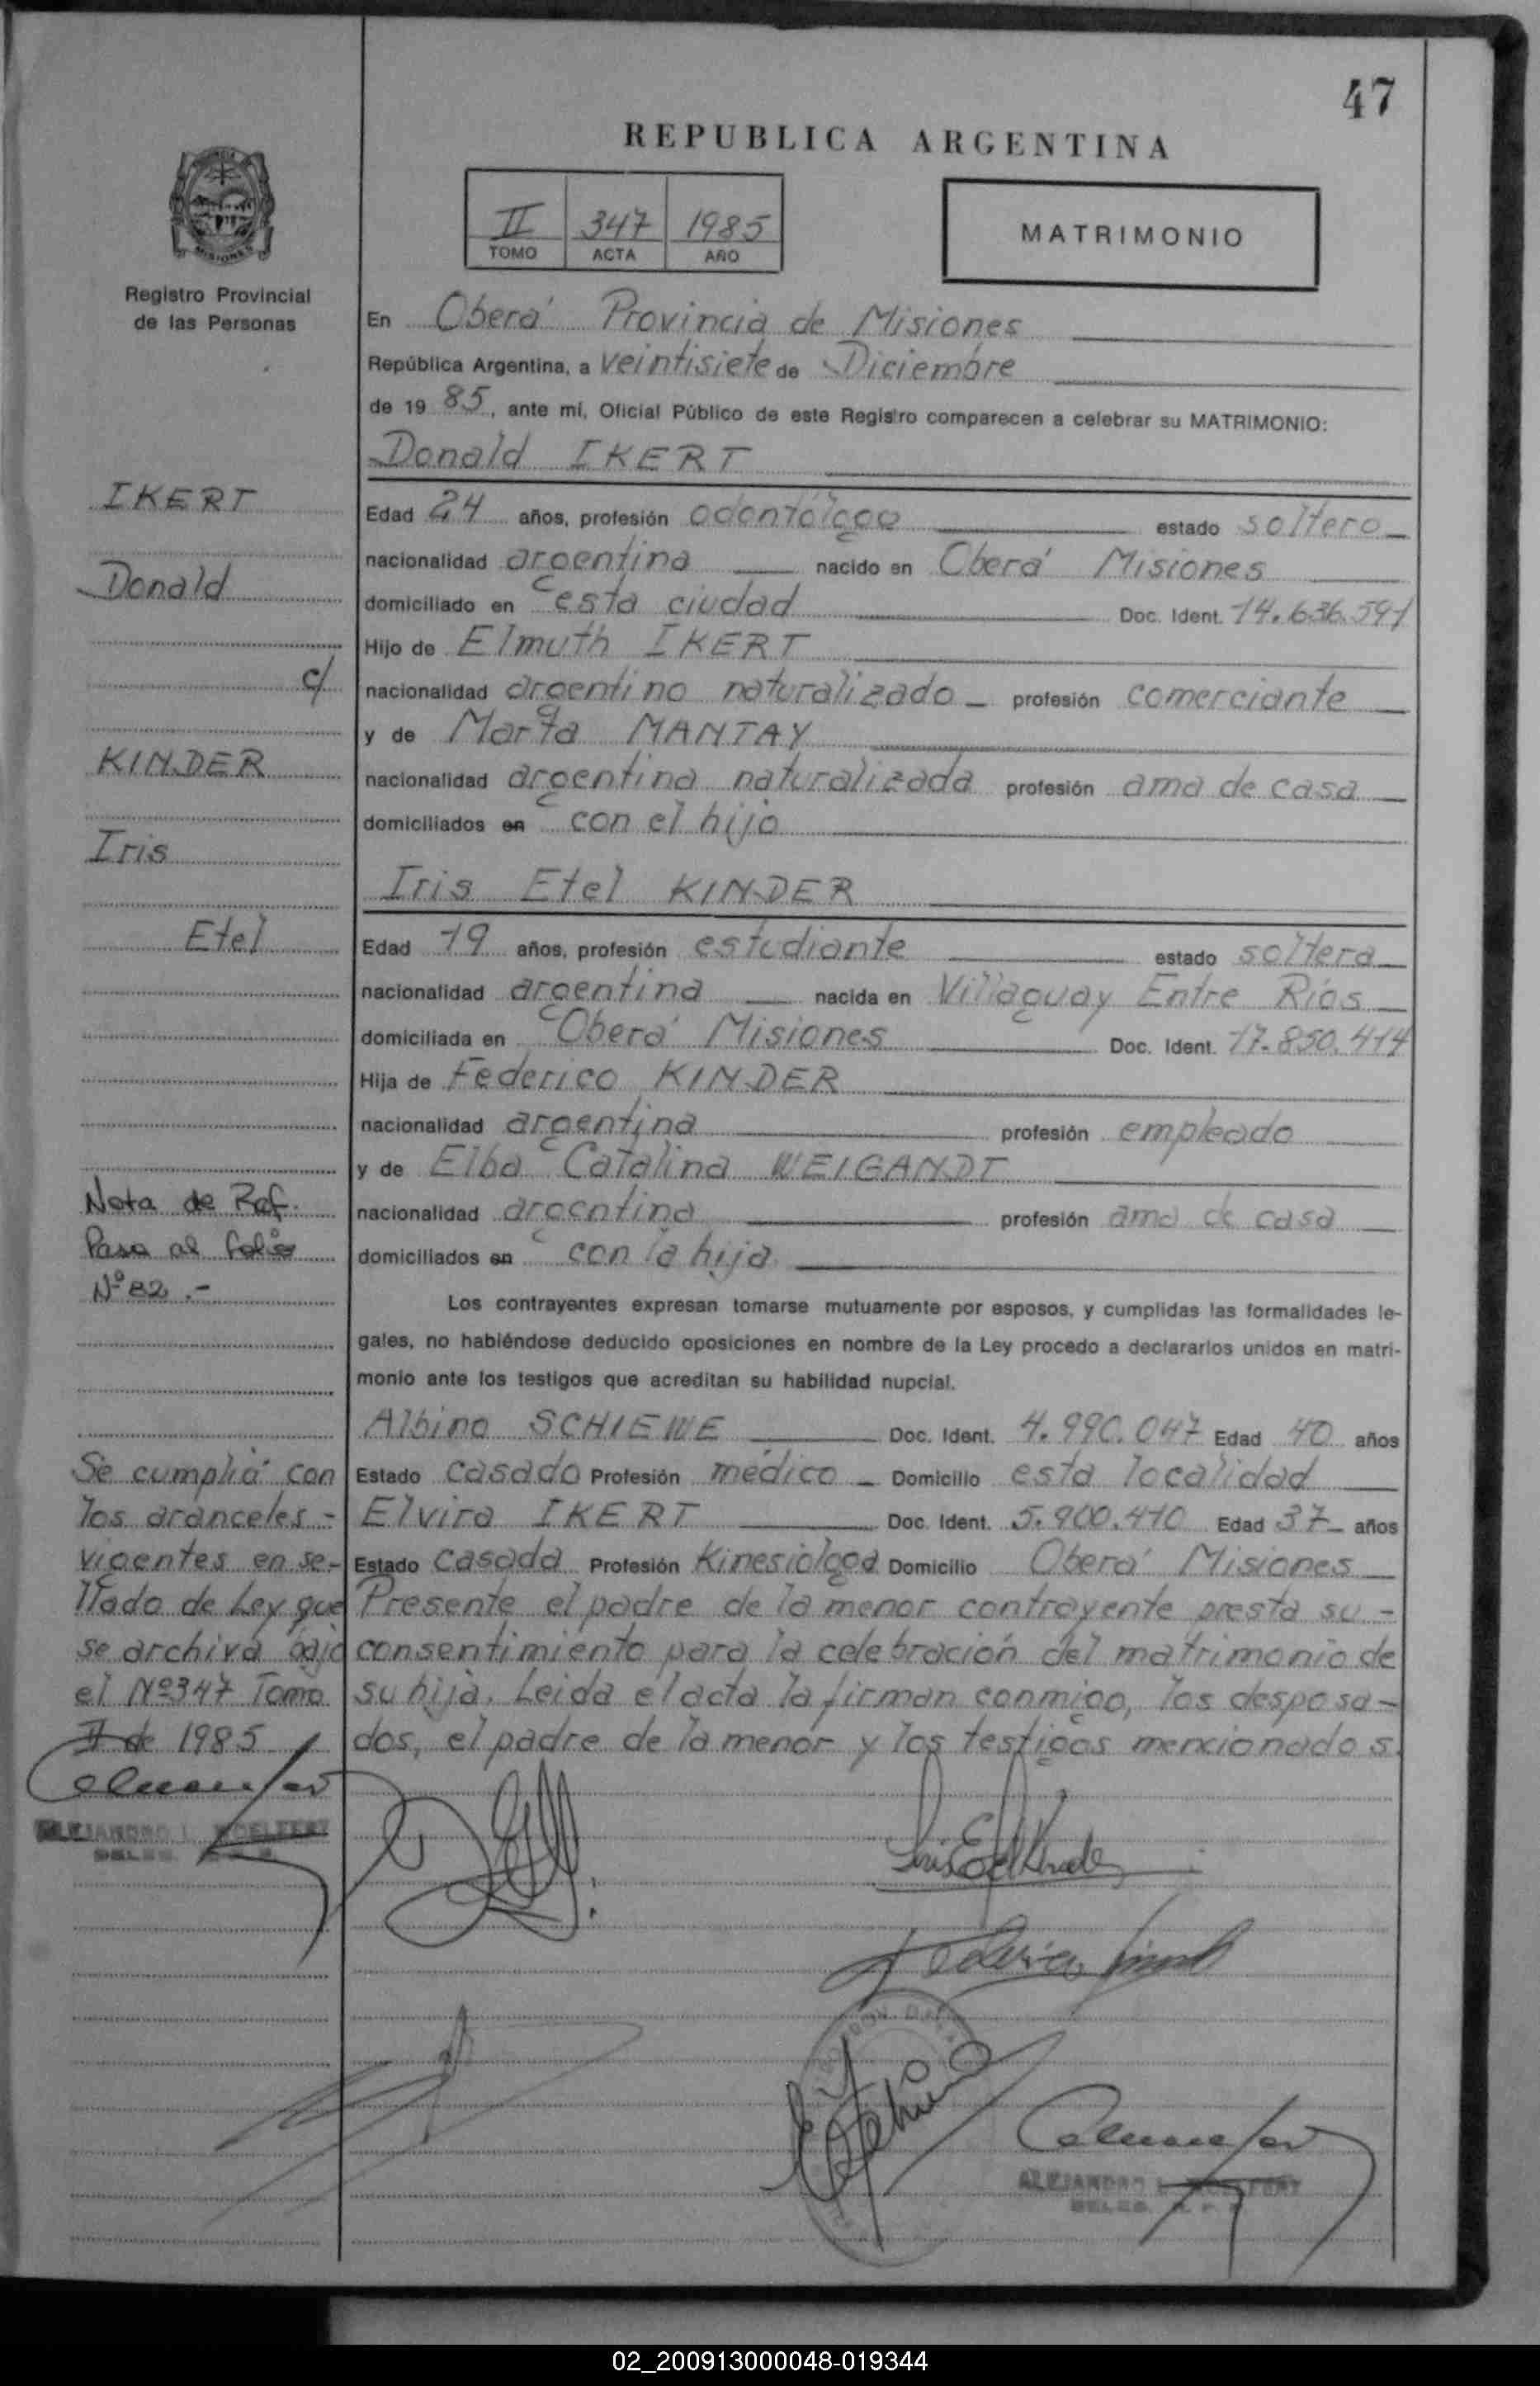 47
REPUBLICA ARGENTINA
II 347 1985
TOMO ACTA AÑO
MATRIMONIO
MISIONES
Registro Provincial
de las Personas
IKERT
Donald
c/
KINDER
Iris
Etel
Nota de Ref.
Pasa al folio
Nº 82.-
Se cumplió con
los aranceles -
vigentes en se-
llado de Ley que
se archiva bajo
el Nº 347 Tomo
II de 1985
ALEJANDRO L.
En Oberá Provincia de Misiones
República Argentina, a veintisiete de Diciembre
de 19 85, ante mí, Oficial Público de este Registro comparecen a celebrar su MATRIMONIO:
Donald IKERT
Edad 24 años, profesión odontólogo estado soltero
nacionalidad argentina nacido en Oberá Misiones
domiciliado en esta ciudad Doc. Ident. 14.636.591
Hijo de Elmuth IKERT
nacionalidad argentino naturalizado profesión comerciante
y de Marta MANTAY
nacionalidad argentina naturalizada profesión ama de casa
domiciliados en con el hijo
Iris Etel KINDER
Edad 19 años, profesión estudiante estado soltera
nacionalidad argentina nacida en Villaguay Entre Ríos
domiciliada en Oberá Misiones Doc. Ident. 17.850.414
Hija de Federico KINDER
nacionalidad argentina profesión empleado
y de Elba Catalina WEIGANDT
nacionalidad argentina profesión ama de casa
domiciliados en con la hija
Los contrayentes expresan tomarse mutuamente por esposos, y cumplidas las formalidades le-
gales, no habiéndose deducido oposiciones en nombre de la Ley procedo a declararlos unidos en matri-
monio ante los testigos que acreditan su habilidad nupcial.
Albino SCHIEWE Doc. Ident. 4.990.047 Edad 40 años
Estado casado Profesión médico Domicilio esta localidad
Elvira IKERT Doc. Ident. 5.900.410 Edad 37 años
Estado casada Profesión Kinesióloga Domicilio Oberá Misiones
Presente el padre de la menor contrayente presta su -
consentimiento para la celebración del matrimonio de
su hija. Leida el acta la firman conmigo, los desposa-
dos, el padre de la menor y los testigos mencionados.
Iris Etel Kinder
ALEJANDRO L.
02_200913000048-019344